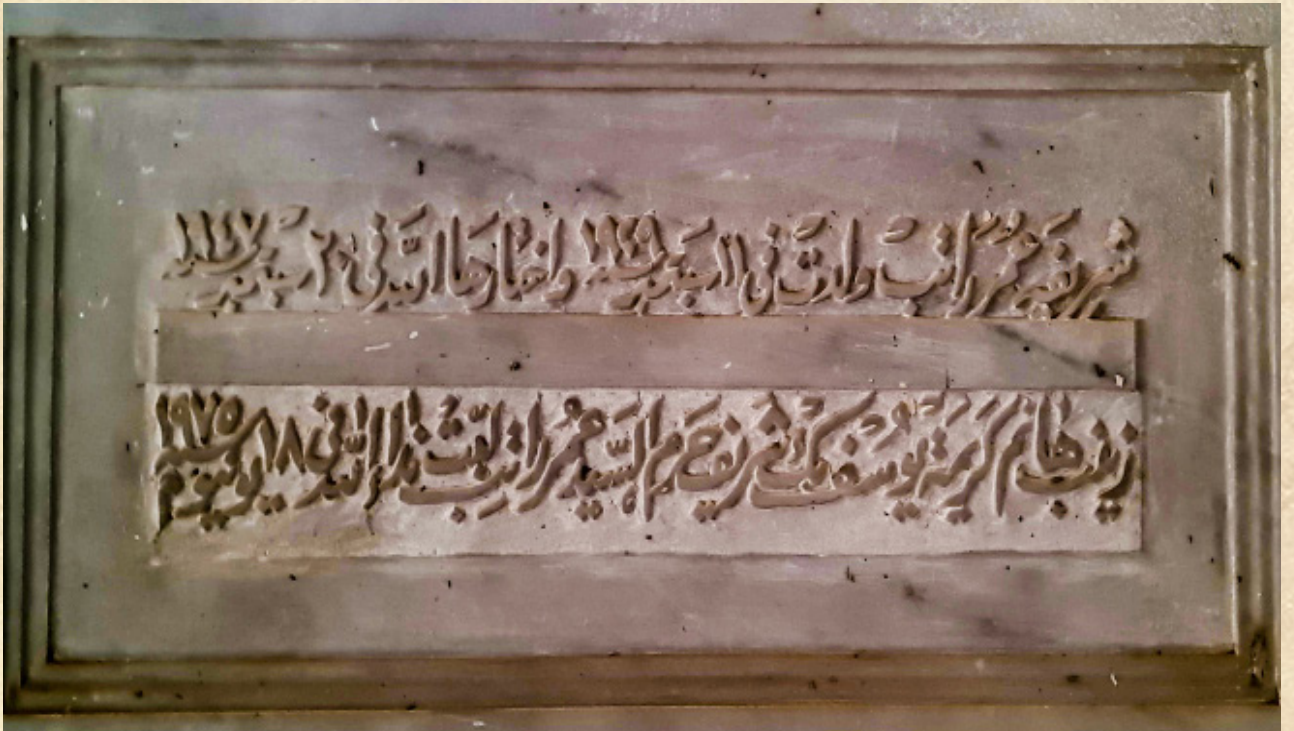 شريفة عمر راتب ولدت فى ١١ سبتمبر سنة ١٩٢٩ واختارها الله فى ٢٠ سبتمبر سنة
زينب هانم كريمة يوسف بك شريف حرم السيد عمر راتب لبت نداء الله فى ١٨ يونيو سنة ١٩٧٥ م